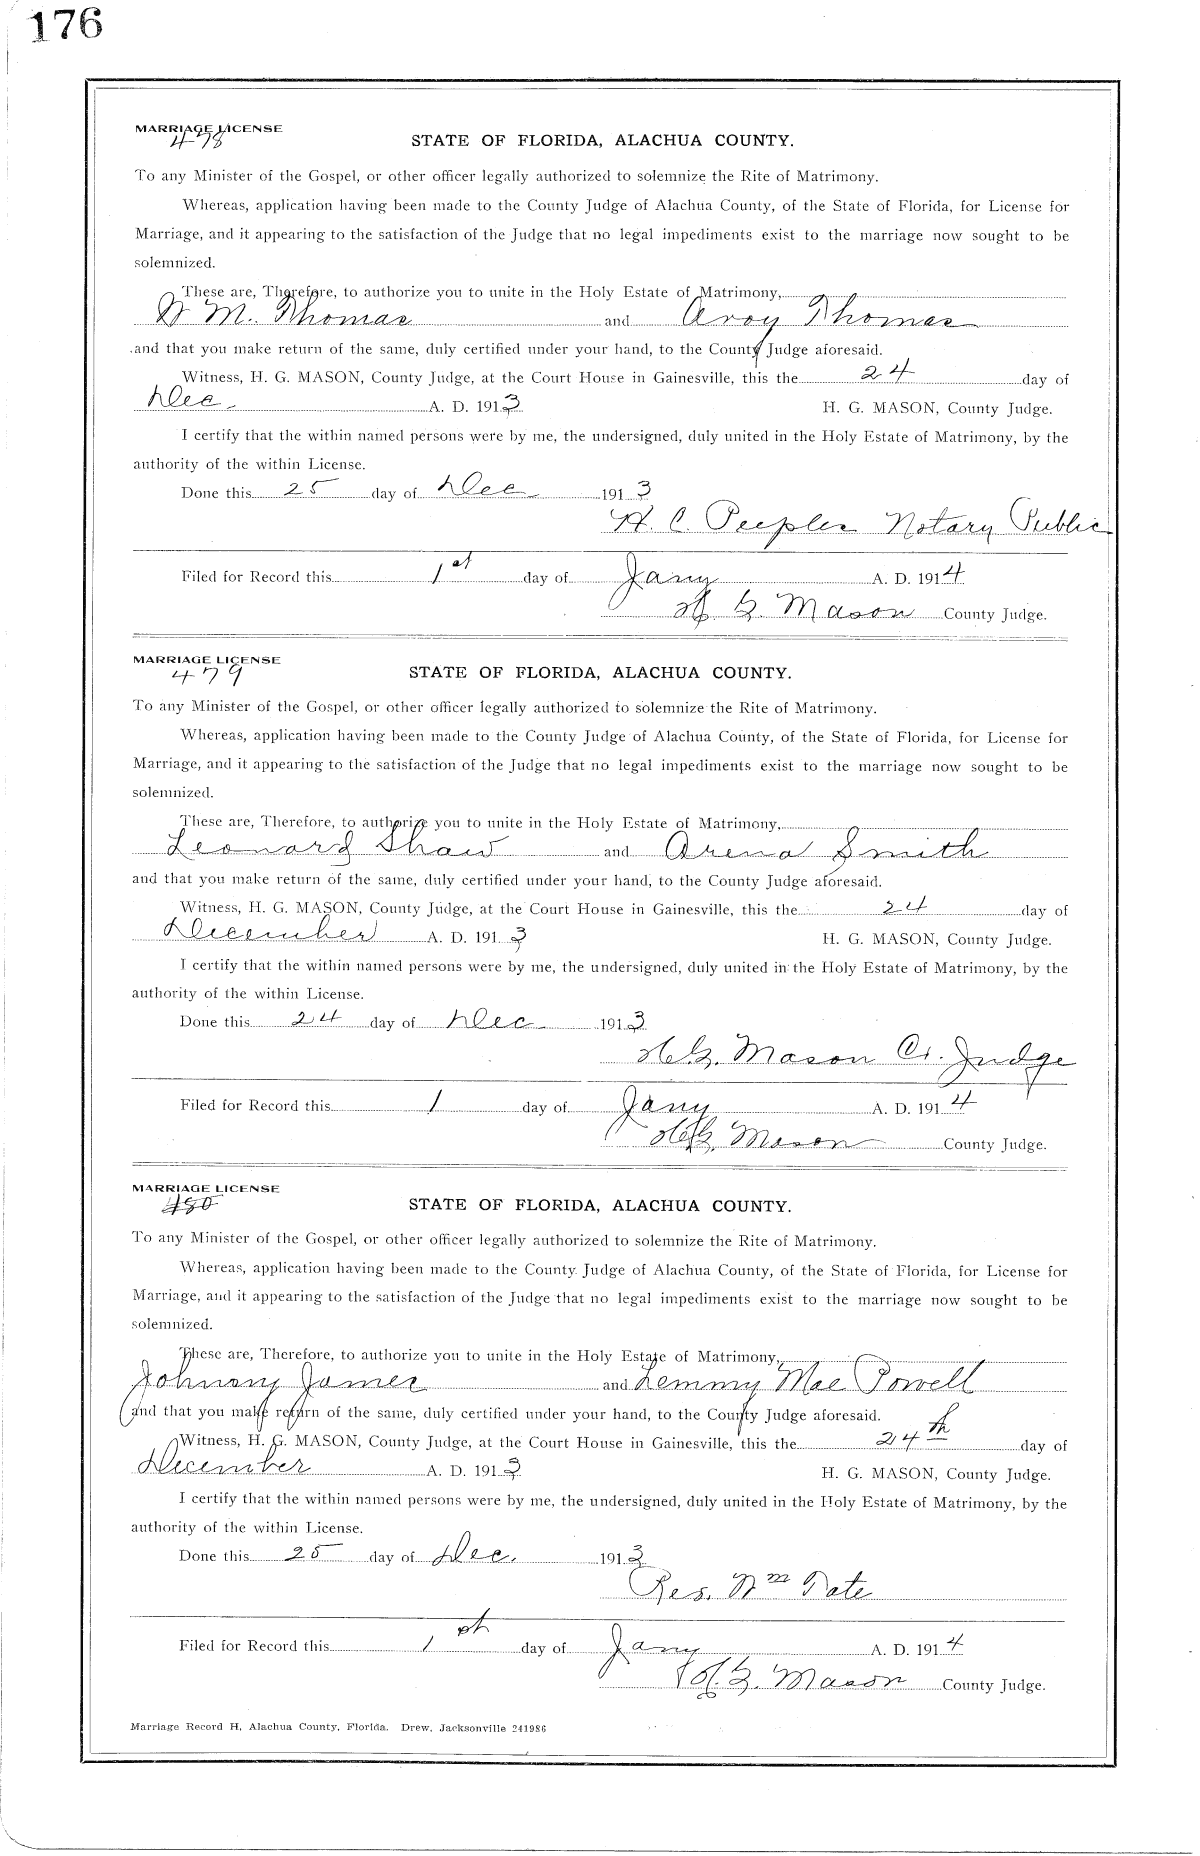 176
MARRIAGE LICENSE
478
STATE OF FLORIDA, ALACHUA COUNTY.
To any Minister of the Gospel, or other officer legally authorized to solemnize the Rite of Matrimony.
Whereas, application having been made to the County Judge of Alachua County, of the State of Florida, for License for
Marriage, and it appearing to the satisfaction of the Judge that no legal impediments exist to the marriage now sought to be
solemnized.
These are, Therefore, to authorize you to unite in the Holy Estate of Matrimony,
W M. Thomas and Avoy Thomas
and that you make return of the same, duly certified under your hand, to the County Judge aforesaid.
Witness, H. G. MASON, County Judge, at the Court House in Gainesville, this the 24 day of
Dec. A. D. 1913 H. G. MASON, County Judge.
I certify that the within named persons were by me, the undersigned, duly united in the Holy Estate of Matrimony, by the
authority of the within License.
Done this 25 day of Dec 1913
H. C. Peeples Notary Public
Filed for Record this 1st day of Jany A. D. 1914
H. G. Mason County Judge.
MARRIAGE LICENSE
479
STATE OF FLORIDA, ALACHUA COUNTY.
To any Minister of the Gospel, or other officer legally authorized to solemnize the Rite of Matrimony.
Whereas, application having been made to the County Judge of Alachua County, of the State of Florida, for License for
Marriage, and it appearing to the satisfaction of the Judge that no legal impediments exist to the marriage now sought to be
solemnized.
These are, Therefore, to authorize you to unite in the Holy Estate of Matrimony,
Leonard Shaw and Arena Smith
and that you make return of the same, duly certified under your hand, to the County Judge aforesaid.
Witness, H. G. MASON, County Judge, at the Court House in Gainesville, this the 24 day of
December A. D. 1913 H. G. MASON, County Judge.
I certify that the within named persons were by me, the undersigned, duly united in the Holy Estate of Matrimony, by the
authority of the within License.
Done this 24 day of Dec 1913
H. G. Mason Co. Judge
Filed for Record this 1 day of Jany A. D. 1914
H. G. Mason County Judge.
MARRIAGE LICENSE
480
STATE OF FLORIDA, ALACHUA COUNTY.
To any Minister of the Gospel, or other officer legally authorized to solemnize the Rite of Matrimony.
Whereas, application having been made to the County Judge of Alachua County, of the State of Florida, for License for
Marriage, and it appearing to the satisfaction of the Judge that no legal impediments exist to the marriage now sought to be
solemnized.
These are, Therefore, to authorize you to unite in the Holy Estate of Matrimony,
Johnny James and Lemmy Mae Powell
and that you make return of the same, duly certified under your hand, to the County Judge aforesaid.
Witness, H. G. MASON, County Judge, at the Court House in Gainesville, this the 24th day of
December A. D. 1913 H. G. MASON, County Judge.
I certify that the within named persons were by me, the undersigned, duly united in the Holy Estate of Matrimony, by the
authority of the within License.
Done this 25 day of Dec. 1913
Rev. Wm Tate
Filed for Record this 1st day of Jany A. D. 1914
H. G. Mason County Judge.
Marriage Record H, Alachua County, Florida. Drew, Jacksonville 241986